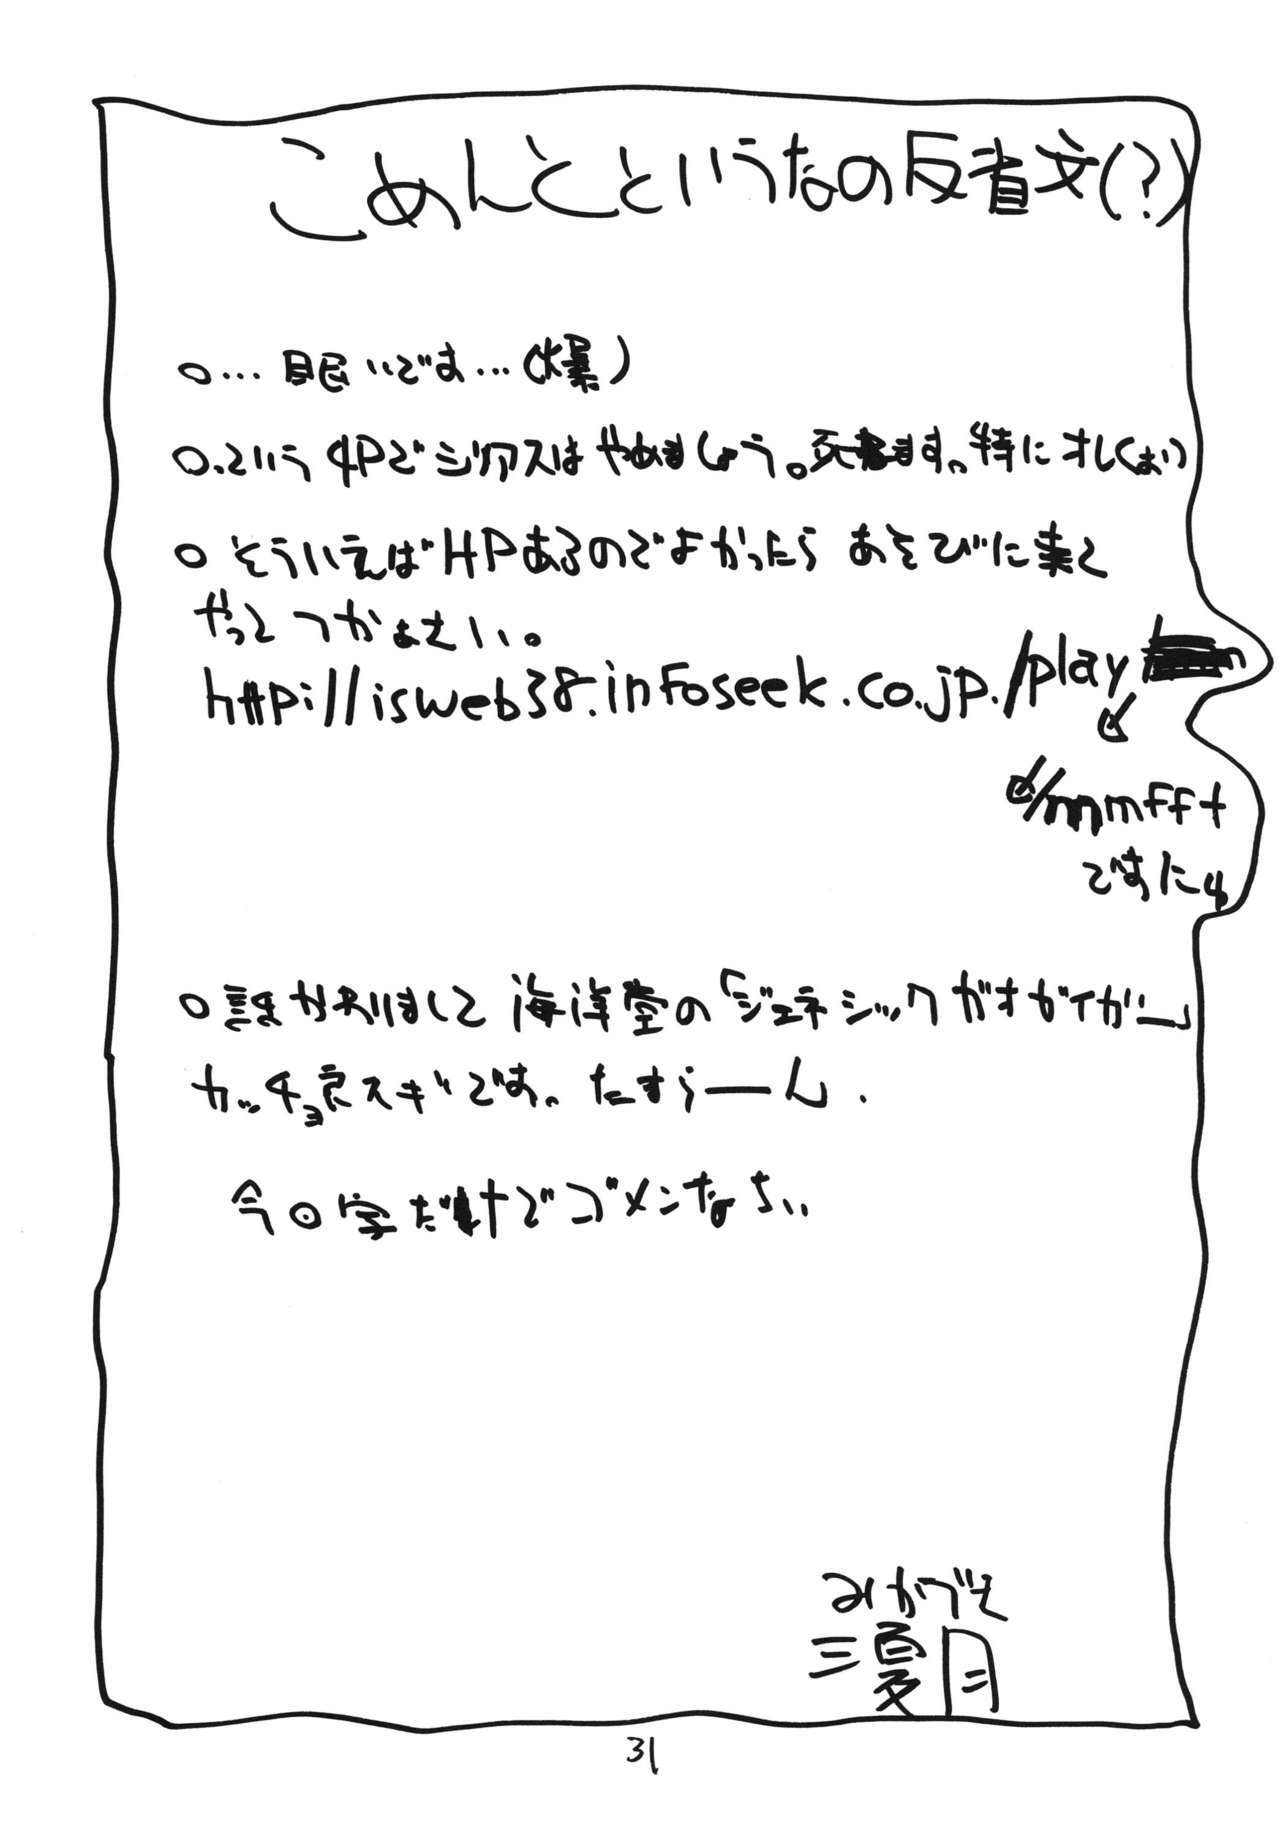 こめんとというなの反省文(?)
○…眠いです…(爆)
○.という4Pでジリアスはやめましょう。死ぬます。特にオレ(おい)
○そういえばHPあるのでよかったらあそびに来て
やってつかぁさい。
http://isweb38.infoseek.co.jp./play
/mmfft
ですにゅ
○誰かおりまして海洋堂の「ジェネシックガオガイガー」
カッチョ良スギです。たすらーん.
今回字だけでゴメンなさい
みかづき
三夏月
31